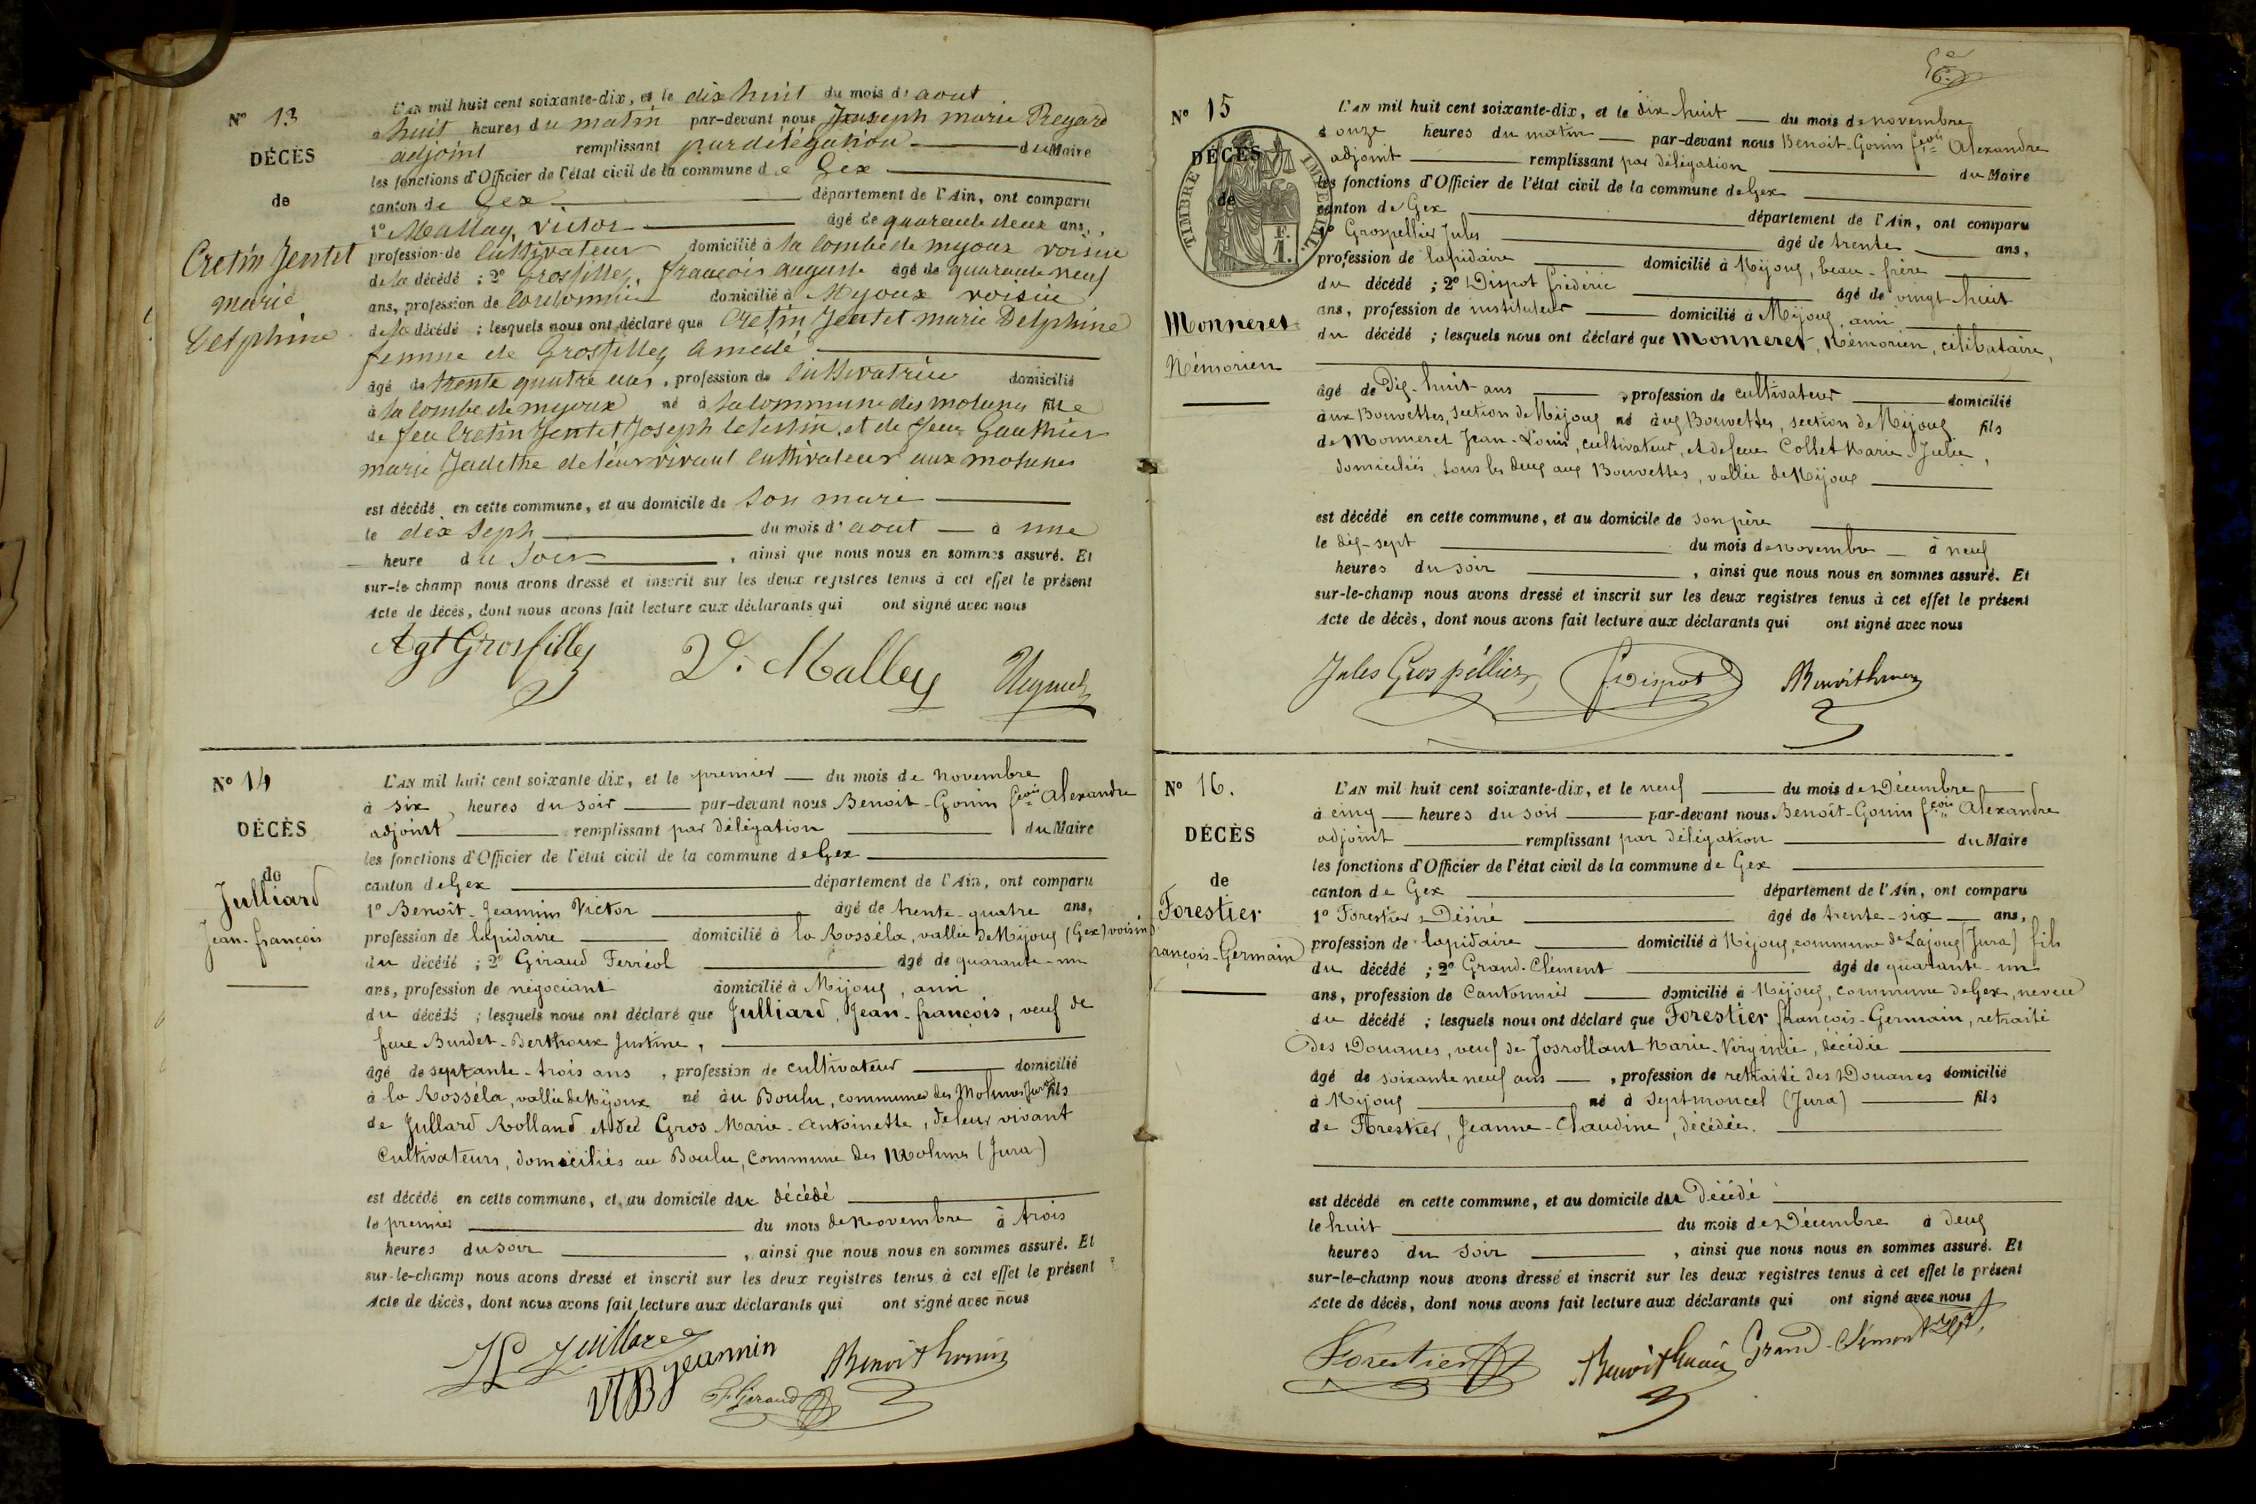 N° 13
DÉCÈS
de
Cretin Jentet
marie
Delphine
L'AN mil huit cent soixante-dix, et le dix huit du mois d'aout
à huit heures du matin par-devant nous Joseph marie Regard
adjoint remplissant par délégation du Maire
les fonctions d'Officier de l'état civil de la commune de Gex
canton de Gex département de l'Ain, ont comparu
1° Mallay Victor âgé de quarante deux ans,
profession de Cultivateur domicilié à la Combe de myoux voisin
de la décédé ; 2° Grosfilley françois auguste âgé de quarante neuf
ans, profession de domicilié à Myoux voisin
de la décédé ; lesquels nous ont déclaré que Cretin Jentet marie Delphine
femme de Grosfilley Amedé
âgé de trente quatre ans, profession de Cultivatrice domicilié
à la Combe de myoux né à la Commune des molunes fille
de feu Cretin Jentet Joseph Celestin, et de feue Gauthier
marie Judithe de leur vivant Cultivateur aux molunes
est décédé en cette commune, et au domicile de son mari
le dix sept du mois d'aout à une
heure du soir, ainsi que nous nous en sommes assuré. Et
sur-le-champ nous avons dressé et inscrit sur les deux registres tenus à cet effet le présent
Acte de décès, dont nous avons fait lecture aux déclarants qui ont signé avec nous
Agt Grosfilley V. Malley
N° 14
DÉCÈS
de
Julliard
Jean-françois
L'AN mil huit cent soixante-dix, et le premier du mois de novembre
à six heures du soir par-devant nous Benoit-Gonin fçois Alexandre
adjoint remplissant par délégation du Maire
les fonctions d'Officier de l'état civil de la commune de Gex
canton de Gex département de l'Ain, ont comparu
1° Benoit-Jeannin Victor âgé de trente-quatre ans,
profession de lapidaire domicilié à la Rosséla, vallée de Mijoux (Gex) voisin
du décédé ; 2° Giraud Ferréol âgé de quarante-un
ans, profession de négociant domicilié à Mijoux, ami
du décédé ; lesquels nous ont déclaré que Julliard, Jean-françois, veuf de
feue Burdet-Berthoux Justine,
âgé de septante-trois ans, profession de cultivateur domicilié
à la Rosséla, vallée de Mijoux né au Boulu, commune des Molunes Jura fils
de Jullard Rolland et de Gros Marie-Antoinette, de leur vivant
cultivateurs, domiciliés au Boulu, commune des Molunes (Jura)
est décédé en cette commune, et au domicile du décédé
le premier du mois de novembre à trois
heures du soir, ainsi que nous nous en sommes assuré. Et
sur-le-champ nous avons dressé et inscrit sur les deux registres tenus à cet effet le présent
Acte de décès, dont nous avons fait lecture aux déclarants qui ont signé avec nous
Juillard
VBJeannin F Giraud Benoit Gonin
N° 15
DÉCÈS
de
TIMBRE IMPÉRIAL
Monneret
Némorien
L'AN mil huit cent soixante-dix, et le dix huit du mois de novembre
à onze heures du matin par-devant nous Benoit-Gonin fçois Alexandre
adjoint remplissant par délégation du Maire
les fonctions d'Officier de l'état civil de la commune de Gex
canton de Gex département de l'Ain, ont comparu
1° Grospellier Jules âgé de trente ans,
profession de lapidaire domicilié à Mijoux, beau-frère
du décédé ; 2° Dispot frédéric âgé de vingt-huit
ans, profession de instituteur domicilié à Mijoux, ami
du décédé ; lesquels nous ont déclaré que Monneret, Némorien, célibataire,
âgé de Dix-huit ans, profession de cultivateur domicilié
aux Bouvettes, section de Mijoux né aux Bouvettes, section de Mijoux fils
de Monneret Jean-Louis, cultivateur, et de feue Collet Marie-Julie,
domiciliés tous les deux aux Bouvettes, vallée de Mijoux
est décédé en cette commune, et au domicile de son père
le dix-sept du mois de novembre à neuf
heures du soir, ainsi que nous nous en sommes assuré. Et
sur-le-champ nous avons dressé et inscrit sur les deux registres tenus à cet effet le présent
Acte de décès, dont nous avons fait lecture aux déclarants qui ont signé avec nous
Jules Grospéllier f Dispot Benoit Gonin
N° 16.
DÉCÈS
de
Forestier
rançois-Germain
L'AN mil huit cent soixante-dix, et le neuf du mois de Décembre
à cinq heures du soir par-devant nous Benoit-Gonin fçois Alexandre
adjoint remplissant par délégation du Maire
les fonctions d'Officier de l'état civil de la commune de Gex
canton de Gex département de l'Ain, ont comparu
1° Forestier Désiré âgé de trente-six ans,
profession de lapidaire domicilié à Mijoux, commune de Lajoux (Jura) fils
du décédé ; 2° Grand-Clément âgé de quarante-un
ans, profession de Cantonnier domicilié à Mijoux, commune de Gex, neveu
du décédé ; lesquels nous ont déclaré que Forestier françois-Germain, retraité
des Douanes, veuf de Josrollant Marie-Virginie, décédée
âgé de soixante neuf ans, profession de retraité des Douanes domicilié
à Mijoux né à Septmoncel (Jura) fils
de Forestier, Jeanne-Claudine, décédée.
est décédé en cette commune, et au domicile du Décédé
le huit du mois de Décembre à deux
heures du soir, ainsi que nous nous en sommes assuré. Et
sur-le-champ nous avons dressé et inscrit sur les deux registres tenus à cet effet le présent
Acte de décès, dont nous avons fait lecture aux déclarants qui ont signé avec nous
Forestier Benoit Gonin Grand-Clément